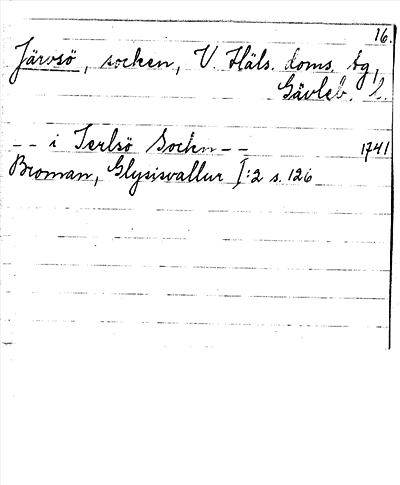 16.
Järvsö, socken, V. Häls. doms. tg,
Gävleb. l.
-- i Jerlsö Socken -- 1741
Broman, Glysisvallur I:2 s. 126